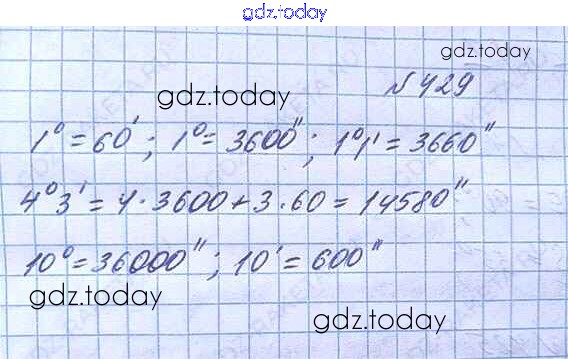 gdz.today
gdz.today
№429
gdz.today
1° = 60'; 1° = 3600"; 1°1' = 3660"
4°3' = 4·3600+3·60 = 14580"
10° = 36000"; 10' = 600"
gdz.today
gdz.today